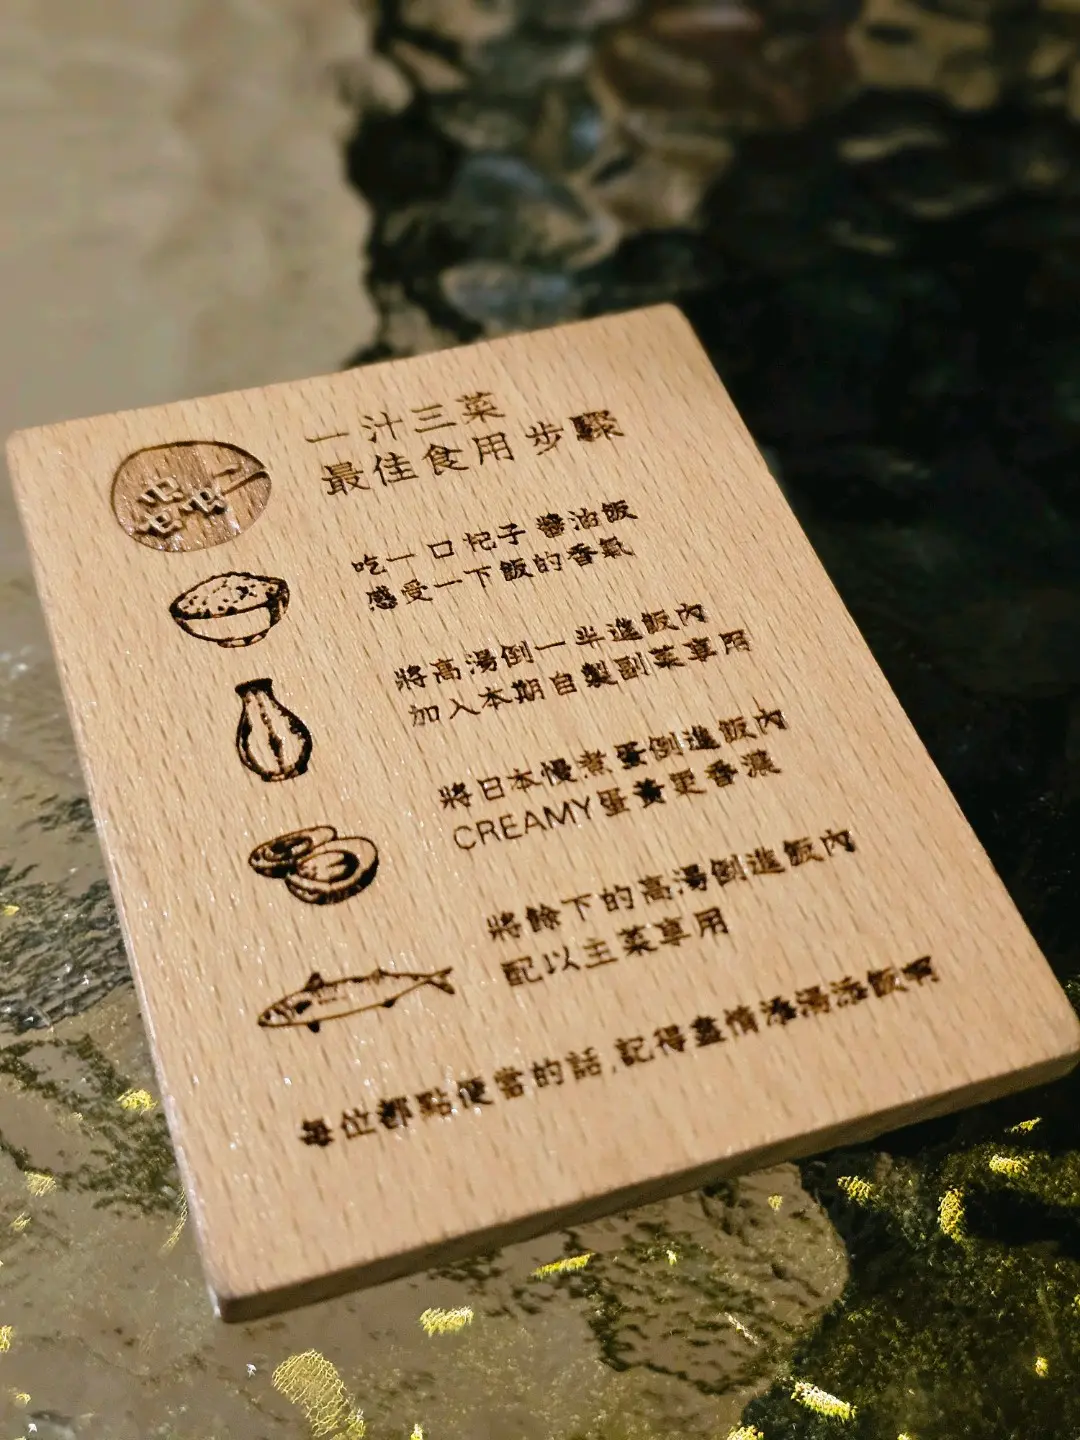 一汁三菜
最佳食用步驟
吃一口杞子醬油飯
感受一下飯的香氣
將高湯倒一半進飯內
加入本期自製副菜享用
將日本慢煮蛋倒進飯內
CREAMY蛋黃更香濃
將餘下的高湯倒進飯內
配以主菜享用
每位都點便當的話,記得盡情添湯添飯啊